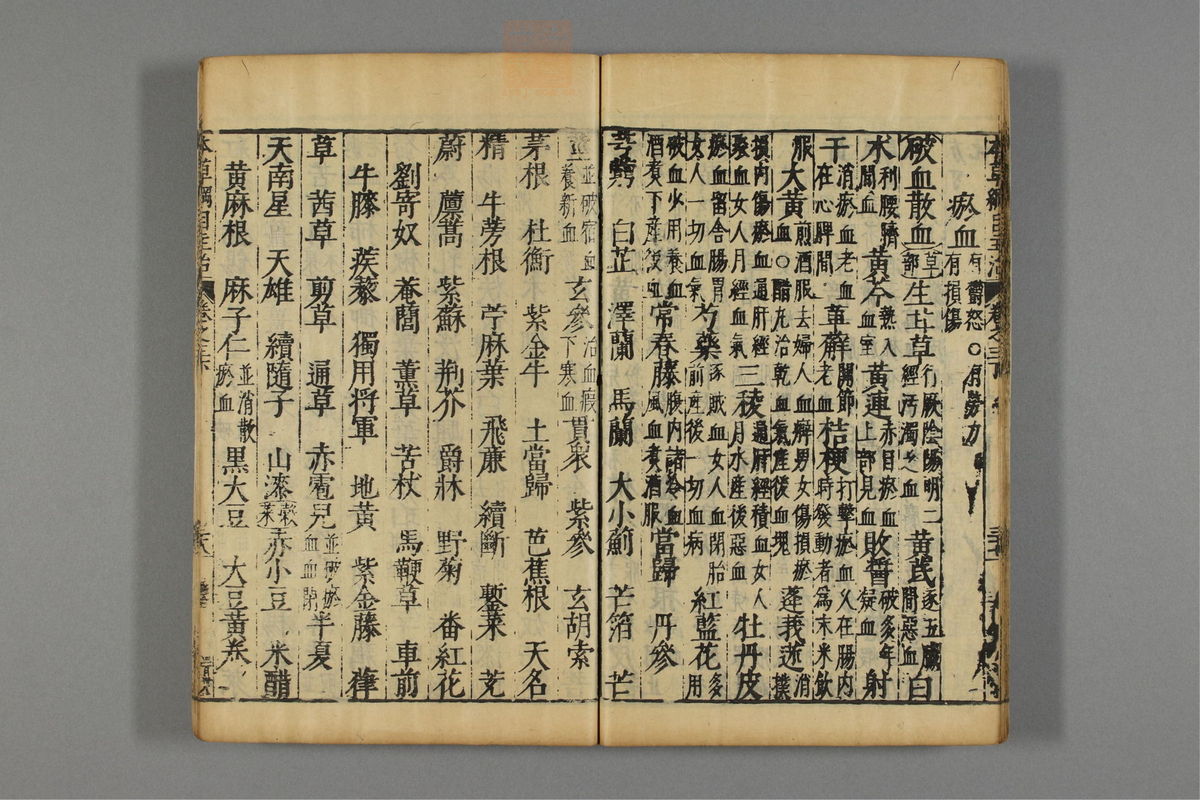 本草綱目主治 卷之三
瘀血 有鬱怒○有勞力有損傷
破血散血 草部 生甘草 行厥陰陽明二經汚濁之血 黃芪 逐五臟間惡血 白
水 利腰臍間血 黃芩 熱入血室 黃連 赤目瘀血上部見血 敗醬 破多年凝血 射
干 消瘀血老血在心脾間 萆薢 關節老血 桔梗 打擊瘀血久在腸內時發動者爲末米飲
服 大黃 煎酒服去婦人血癖男女傷損瘀血○醋丸治乾血氣產後血塊 蓬莪 消撲
損內傷瘀血通肝經聚血女人月經血氣 三稜 通肝經積血女人月水產後惡血 牡丹皮
瘀血留舍腸胃女人一切血氣 芍藥 逐賊血女人血閉胎前產後一切血病 紅藍花 多用
破血少用養血酒煮下產後血 常春藤 腹內諸冷血風血煮酒服 當歸 丹參
芎藭 白芷 澤蘭 馬蘭 大小薊 芒箔 芒
莖 並破宿血養新血 玄參 治血瘕下寒血 貫衆 紫參 玄胡索
茅根 杜衡 紫金牛 土當歸 芭蕉根 天名
精 牛蒡根 苧麻葉 飛廉 續斷 菜 茺
蔚 蒿 紫蘇 荊芥 爵牀 野菊 番紅花
劉寄奴 菴䕡 薰草 苦杖 馬鞭草 車前
牛膝 蒺藜 獨用将軍 地黃 紫金藤 葎
草 茜草 剪草 通草 赤雹兒 並破瘀血血閉 半夏
天南星 天雄 續隨子 山漆 赤小豆 米醋
黃麻根 麻子仁 並消散瘀血 黑大豆 大豆黃卷
本草綱目主治 卷之三